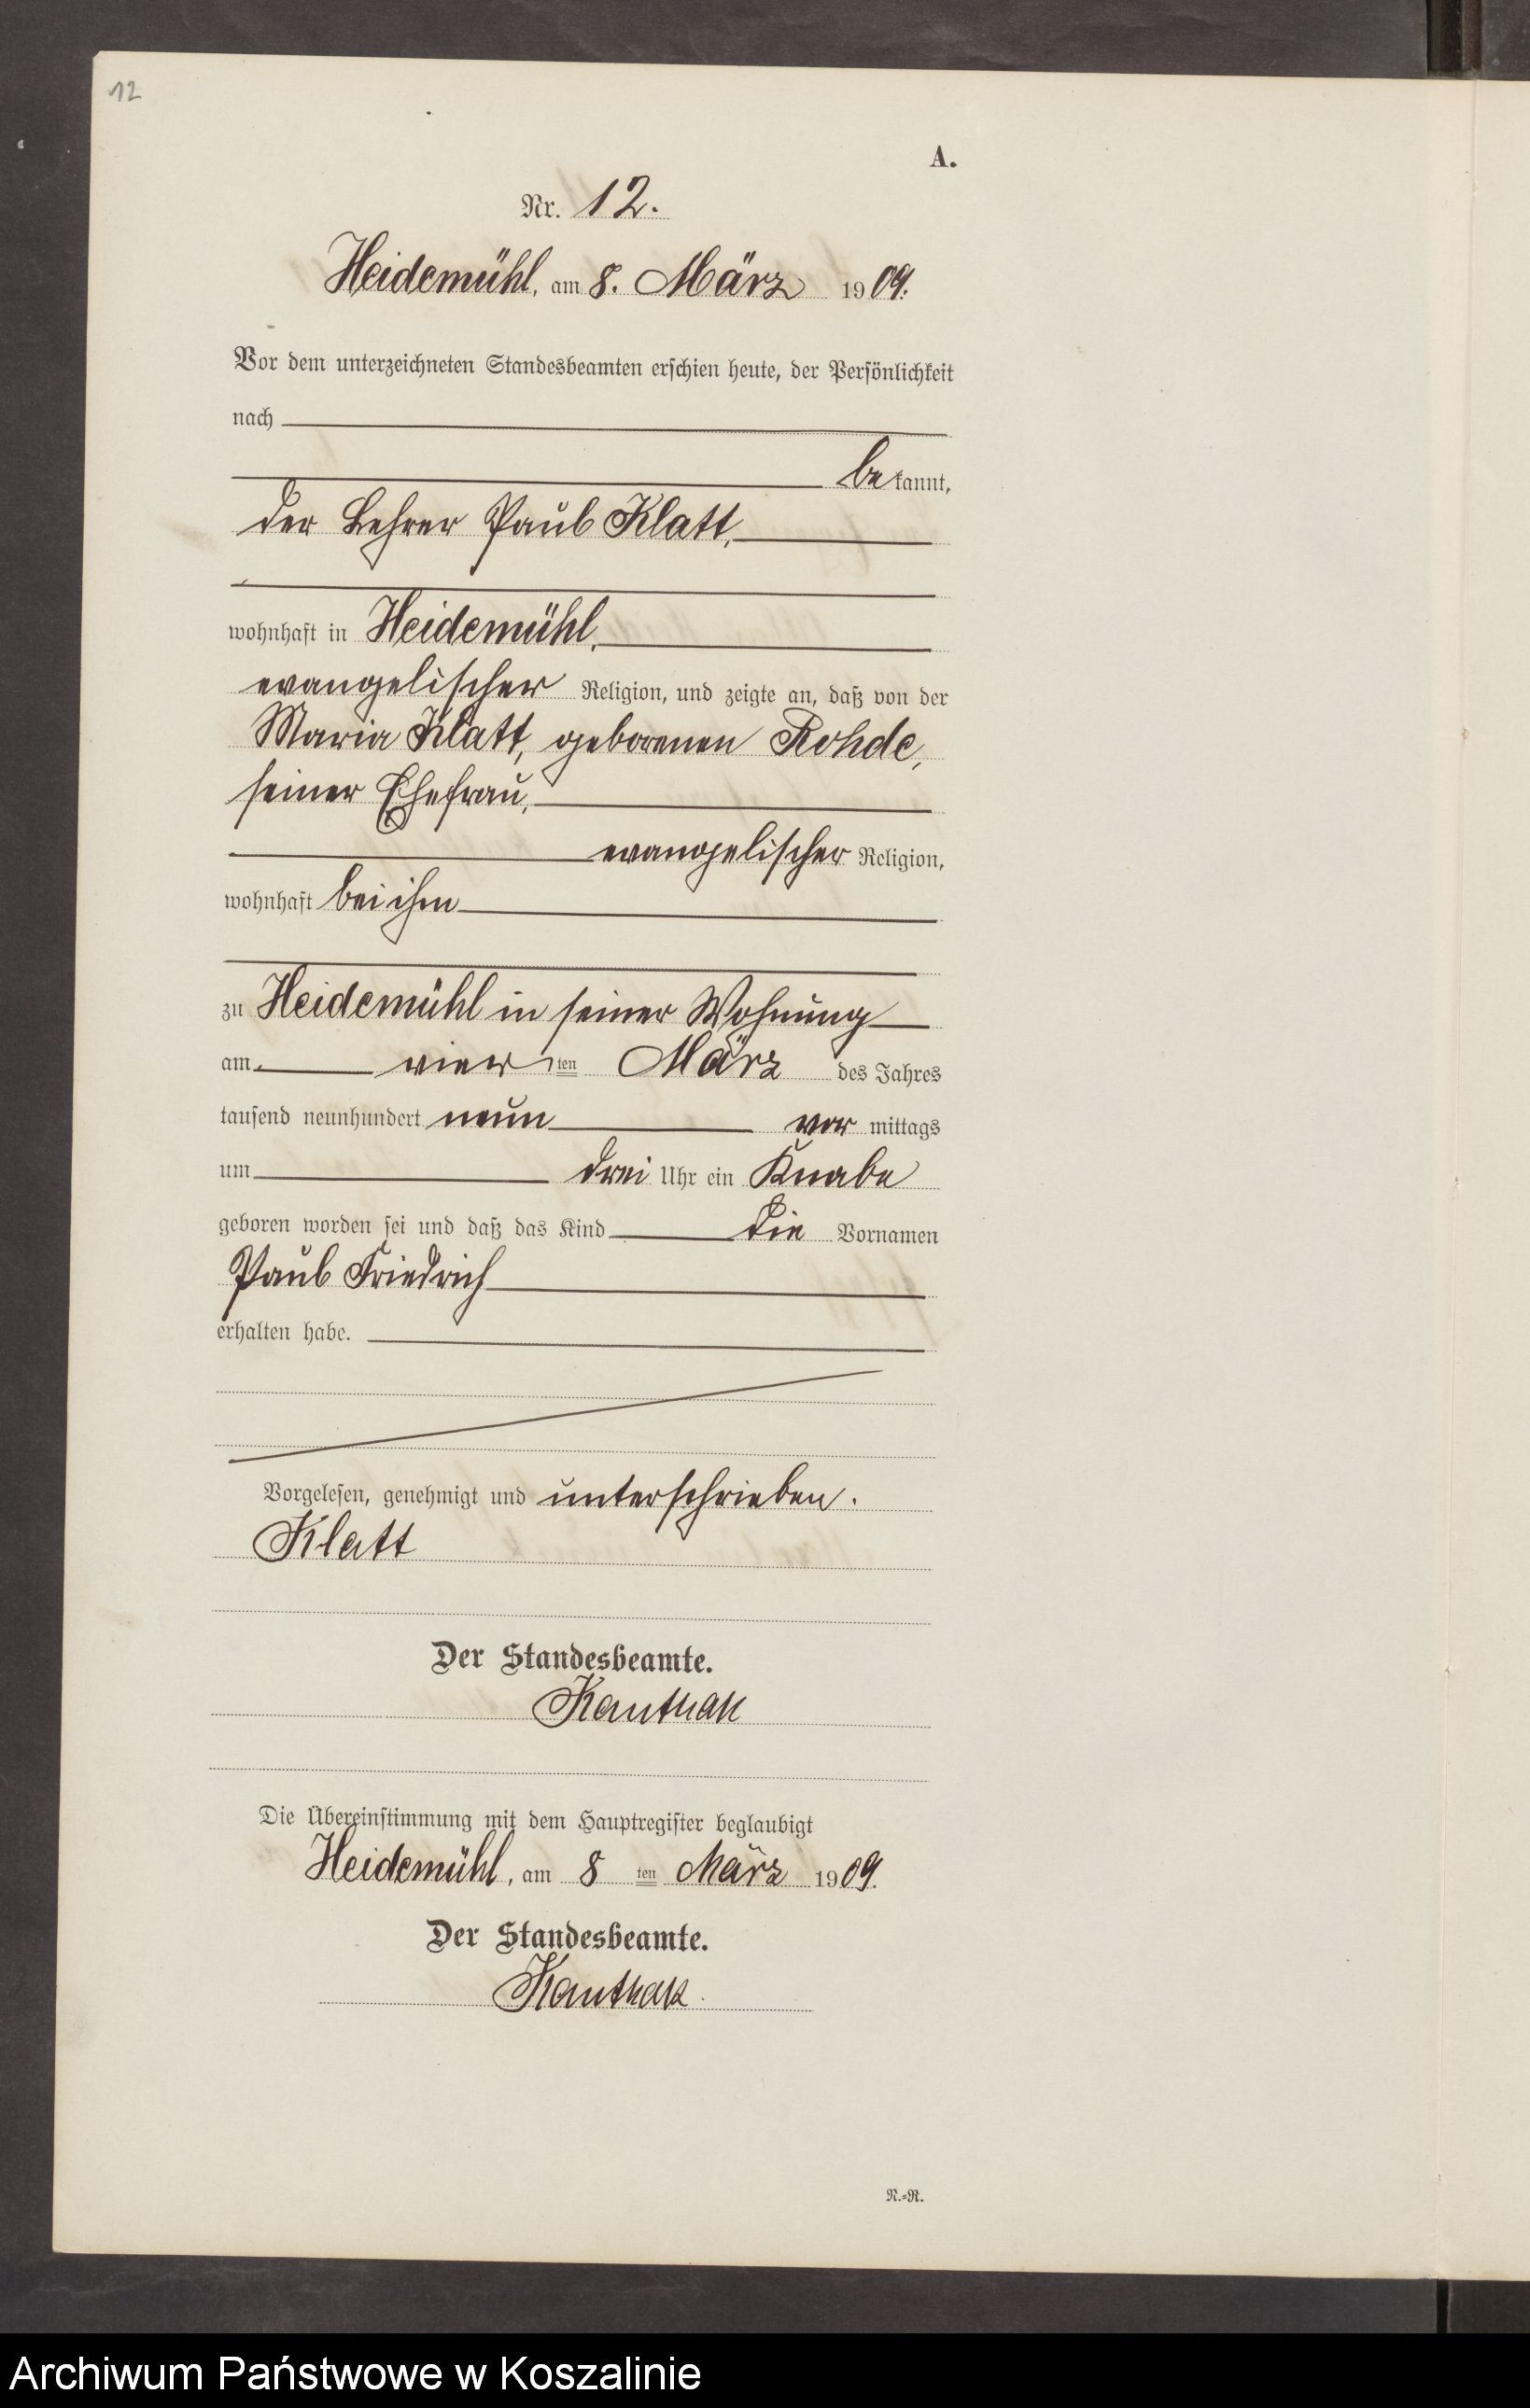 12
A.
Nr. 12.
Heidemühl, am 8. März 1909.
Vor dem unterzeichneten Standesbeamten erschien heute, der Persönlichkeit
nach
bekannt,
der Lehrer Paul Klatt,
wohnhaft in Heidemühl,
evangelischer Religion, und zeigte an, daß von der
Maria Klatt, geborenen Rohde,
seiner Ehefrau,
evangelischer Religion,
wohnhaft bei ihm
zu Heidemühl in seiner Wohnung
am vierten März des Jahres
tausend neunhundert neun vormittags
um drei Uhr ein Knabe
geboren worden sei und daß das Kind die Vornamen
Paul Friedrich
erhalten habe.
Vorgelesen, genehmigt und unterschrieben.
Klatt
Der Standesbeamte.
Die Übereinstimmung mit dem Hauptregister beglaubigt
Heidemühl, am 8ten März 1909.
Der Standesbeamte.
N.=R.
Archiwum Państwowe w Koszalinie